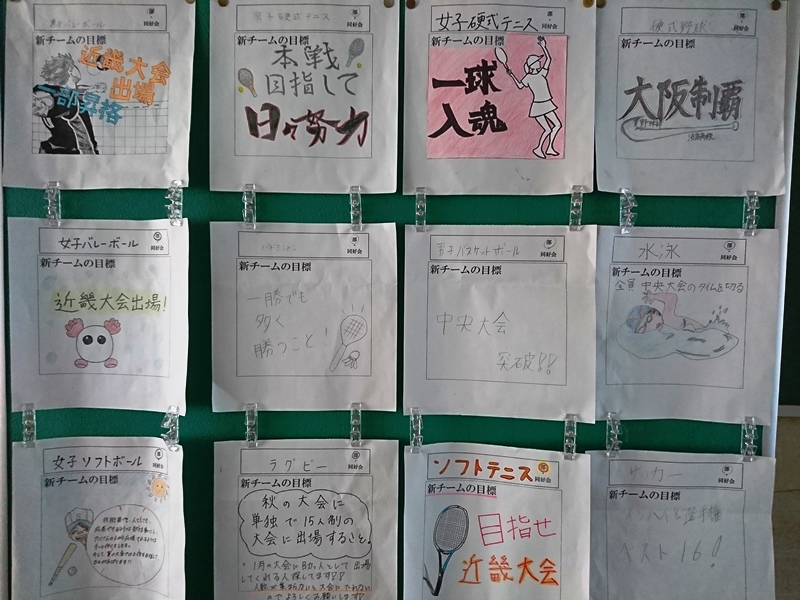 男子バレーボール
部・同好会
新チームの目標
近畿大会
出場
一部昇格
男子硬式テニス
部・同好会
新チームの目標
本戦
目指して
日々努力
女子硬式テニス
部・同好会
新チームの目標
一球
入魂
硬式野球
部・同好会
新チームの目標
大阪制覇
女子バレーボール
部・同好会
新チームの目標
近畿大会出場!
バドミントン
部・同好会
新チームの目標
一勝でも
多く
勝つこと!
男子バスケットボール
部・同好会
新チームの目標
中央大会
突破!!
水泳
部・同好会
新チームの目標
全員 中央大会のタイムを切る
女子ソフトボール
部・同好会
新チームの目標
ラグビー
部・同好会
新チームの目標
秋の大会に
単独で15人制の
大会に出場すること。
・1月の大会に助っ人として出場
してくれる人探してます!!
人数が集まらないと大会にでれない
のでよろしくお願いします!
ソフトテニス
部・同好会
新チームの目標
目指せ
近畿大会
サッカー
部・同好会
新チームの目標
ベスト16!